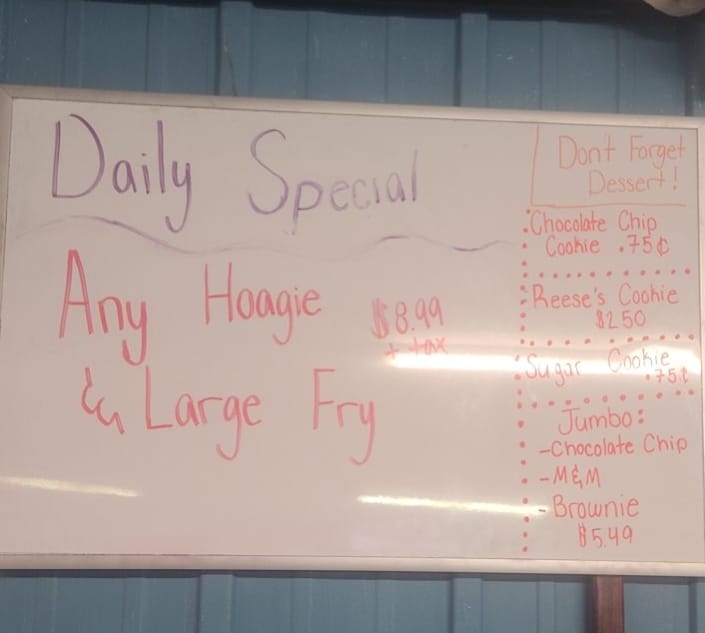 Daily Special
Any Hoagie $8.99
+ tax
& Large Fry
Dont Forget
Dessert!
Chocolate Chip
Cookie .75¢
Reese's Cookie
$2.50
Sugar Cookie
.75¢
Jumbo:
-Chocolate Chip
-M&M
-Brownie
$5.49